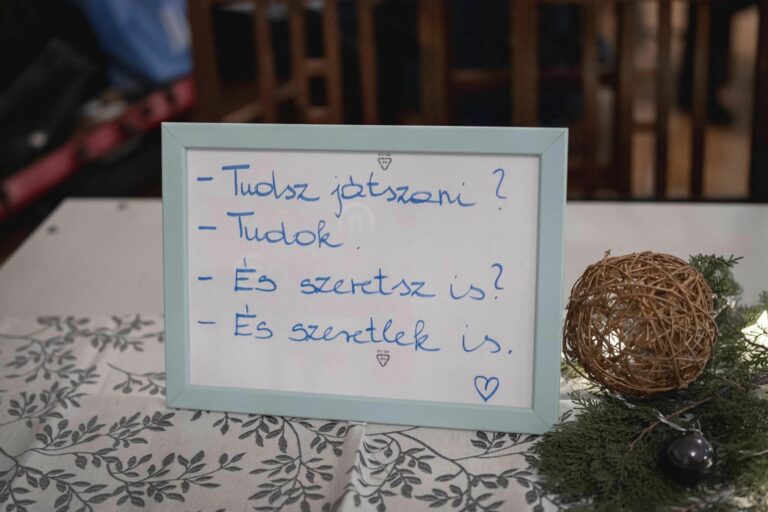 - Tudsz játszani?
- Tudok.
- És szeretsz is?
- És szeretlek is.
♡